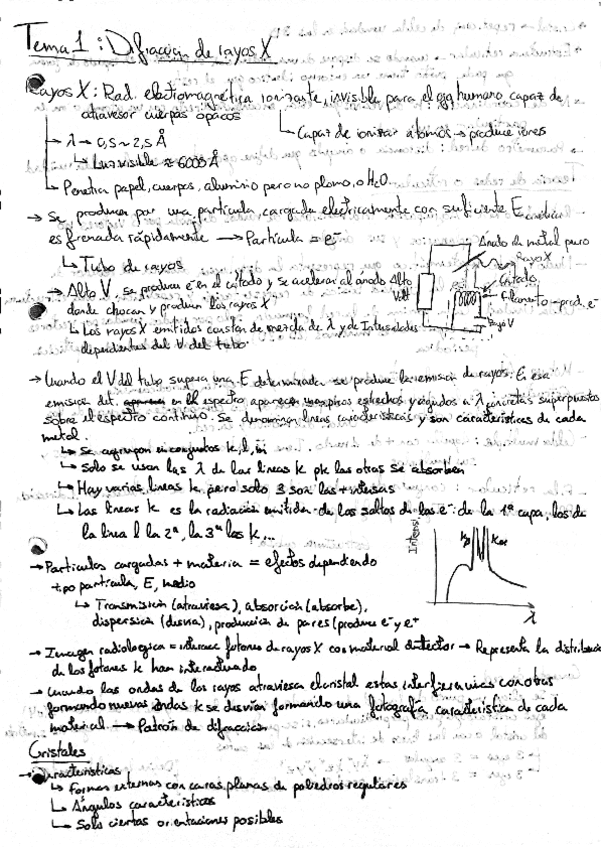 Tema 1: Difracción de rayos X
Rayos X: Rad. electromagnética ionizante, invisible para el ojo humano capaz de
atravesar cuerpos opacos
Capaz de ionizar átomos → produce iones
λ → 0,5 ~ 2,5 Å
Luz visible ≈ 6000 Å
Penetra papel, cuerpos, aluminio pero no plomo, o H2O
→ Se producen por una partícula, cargada eléctricamente con suficiente E
es frenada rápidamente → Partícula = e-
Tubo de rayos
→ Alto V, se producen e- en el cátodo y se aceleran al ánodo
donde chocan y producen los rayos X
Los rayos X emitidos constan de mezcla de λ y de Intensidades
dependientes del V del tubo.
Ánodo de metal puro
Rayo X
Cátodo
Filamento → prod. e-
Alto
Volt
Bajo V
→ Cuando el V del tubo supera una E determinada se produce la emisión de rayos. En esa
emisión det. en el espectro aparecen unos picos estrechos y agudos a λ concretas superpuestos
sobre el espectro continuo. Se denominan líneas características y son características de cada
metal.
Se agrupan en conjuntos k, l, m
Solo se usan las λ de las líneas k pk las otras se absorben
Hay varias líneas k pero solo 3 son las + intensas
Las líneas k es la radiación emitida de los saltos de los e- de la 1ª capa, los de
la línea l la 2ª, la 3ª los k...
→ Particulas cargadas + materia = efectos dependiendo
tipo partícula, E, medio
Transmisión (atraviesa), absorción (absorbe),
dispersión (desvía), producción de pares (produce e- y e+
Intensi
kβ
kα
λ
→ Imagen radiologica = interacc fotones de rayos X con material detector → Representa la distribución
de los fotones k han interactuado
→ Cuando las ondas de los rayos atraviesa el cristal estas interfieren unas con otras
formando nuevas ondas k se desvían formando una fotografía característica de cada
material → Patrón de difracción
Cristales
→ Características
Formas externas con caras planas de poliedros regulares
Ángulos característicos
Solo ciertas orientaciones posibles